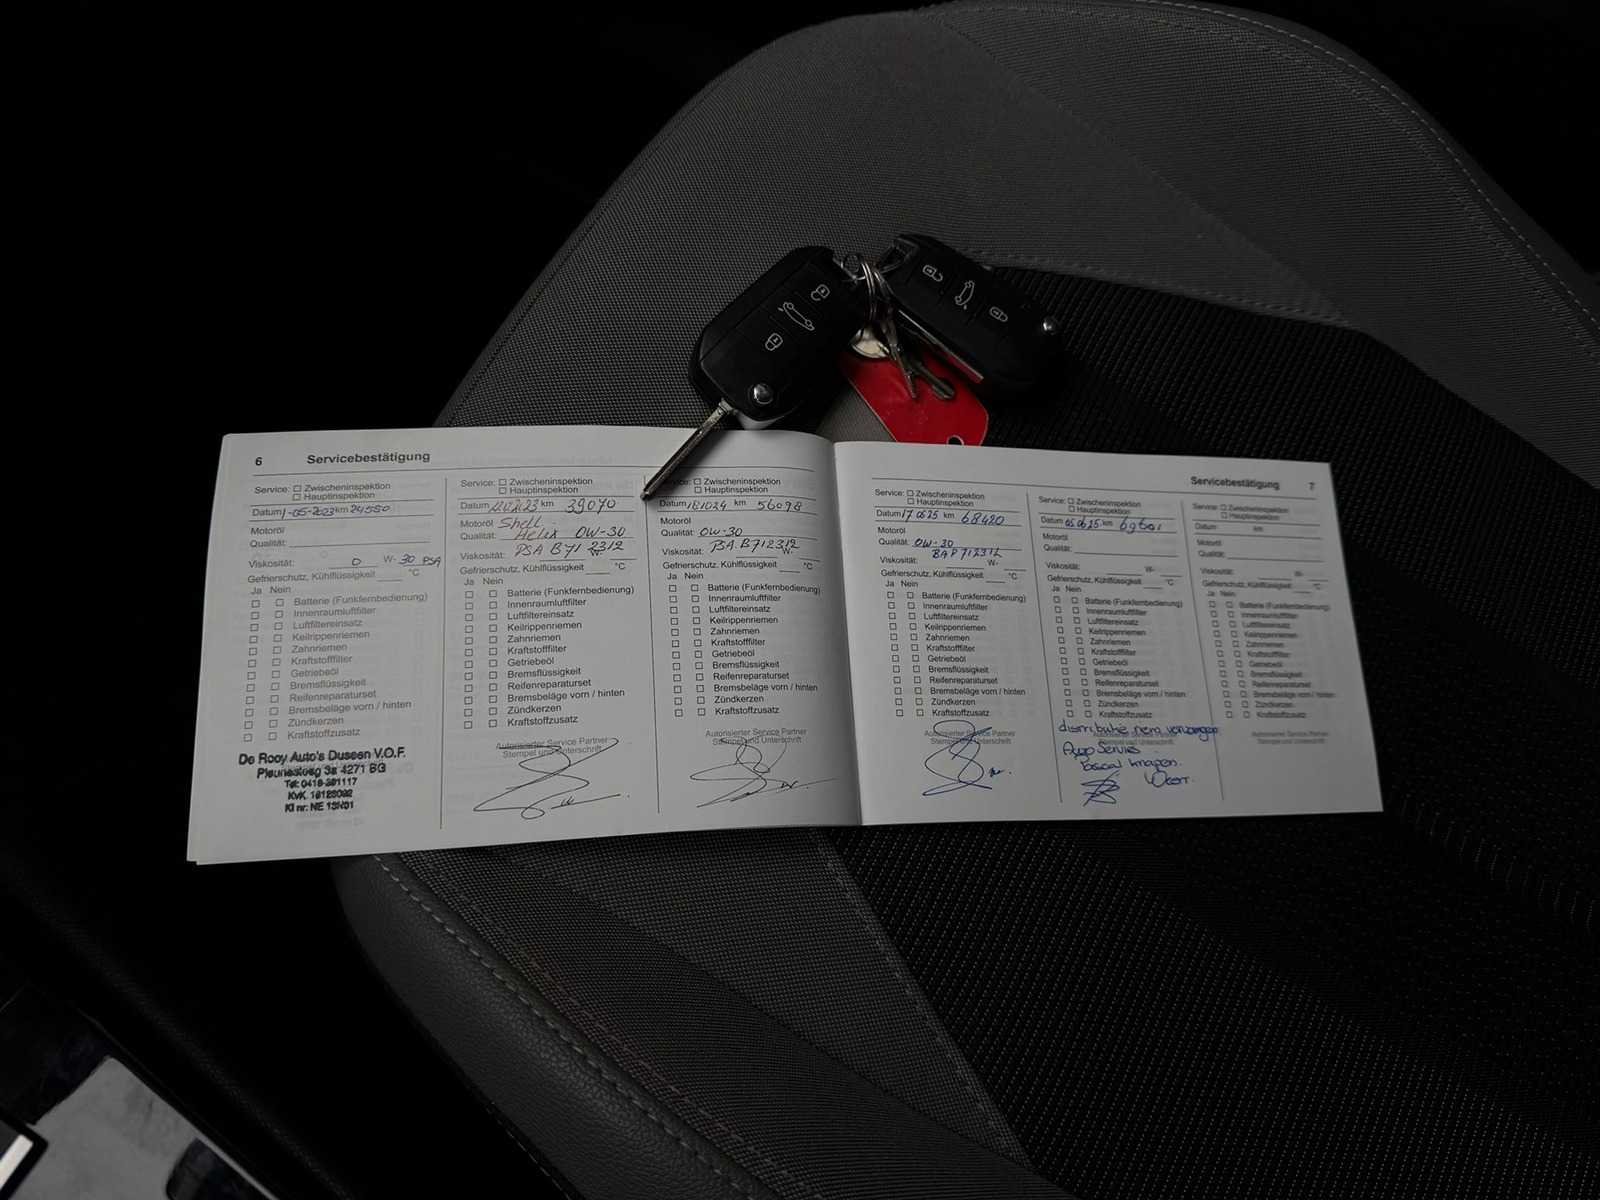 6 Servicebestätigung
Service: Zwischeninspektion
Hauptinspektion
Datum 1-05-2023 km 24550
Motoröl
Qualität:
Viskosität: 0 W- 30 PSA
Gefrierschutz, Kühlflüssigkeit °C
Ja Nein
Batterie (Funkfernbedienung)
Innenraumluftfilter
Luftfiltereinsatz
Keilrippenriemen
Zahnriemen
Kraftstofffilter
Getriebeöl
Bremsflüssigkeit
Reifenreparaturset
Bremsbeläge vorn / hinten
Zündkerzen
Kraftstoffzusatz
De Rooy Auto's Dussen V.O.F.
4271 BG
Service: Zwischeninspektion
Hauptinspektion
Datum km 39070
Motoröl Shell
Qualität: Helix 0W-30
Viskosität: PSA B71 2312 W-
Gefrierschutz, Kühlflüssigkeit °C
Ja Nein
Batterie (Funkfernbedienung)
Innenraumluftfilter
Luftfiltereinsatz
Keilrippenriemen
Zahnriemen
Kraftstofffilter
Getriebeöl
Bremsflüssigkeit
Reifenreparaturset
Bremsbeläge vorn / hinten
Zündkerzen
Kraftstoffzusatz
Autorisierter Service Partner
Stempel und Unterschrift
Zwischeninspektion
Hauptinspektion
Datum 181024 km 56098
Motoröl
Qualität: 0W-30
Viskosität: PSA.B712312 W-
Gefrierschutz, Kühlflüssigkeit °C
Ja Nein
Batterie (Funkfernbedienung)
Innenraumluftfilter
Luftfiltereinsatz
Keilrippenriemen
Zahnriemen
Kraftstofffilter
Getriebeöl
Bremsflüssigkeit
Reifenreparaturset
Bremsbeläge vorn / hinten
Zündkerzen
Kraftstoffzusatz
Autorisierter Service Partner
Stempel und Unterschrift
Servicebestätigung 7
Service: Zwischeninspektion
Hauptinspektion
Datum 17 0525 km 68420
Motoröl
Qualität: 0W-30
Viskosität: W-
Gefrierschutz, Kühlflüssigkeit °C
Ja Nein
Batterie (Funkfernbedienung)
Innenraumluftfilter
Luftfiltereinsatz
Keilrippenriemen
Zahnriemen
Kraftstofffilter
Getriebeöl
Bremsflüssigkeit
Reifenreparaturset
Bremsbeläge vorn / hinten
Zündkerzen
Kraftstoffzusatz
Autorisierter Service Partner
Stempel und Unterschrift
Service: Zwischeninspektion
Hauptinspektion
Datum 05 0625 km
Motoröl
Qualität:
Viskosität: W-
Gefrierschutz, Kühlflüssigkeit °C
Ja Nein
Batterie (Funkfernbedienung)
Innenraumluftfilter
Luftfiltereinsatz
Keilrippenriemen
Zahnriemen
Kraftstofffilter
Getriebeöl
Bremsflüssigkeit
Reifenreparaturset
Bremsbeläge vorn / hinten
Zündkerzen
Kraftstoffzusatz
distributie riem vervangen
Autorisierter Service Partner
Stempel und Unterschrift
Service: Zwischeninspektion
Hauptinspektion
Datum km
Motoröl
Qualität:
Viskosität: W-
Gefrierschutz, Kühlflüssigkeit °C
Ja Nein
Batterie (Funkfernbedienung)
Innenraumluftfilter
Luftfiltereinsatz
Keilrippenriemen
Zahnriemen
Kraftstofffilter
Getriebeöl
Bremsflüssigkeit
Reifenreparaturset
Bremsbeläge vorn / hinten
Zündkerzen
Kraftstoffzusatz
Autorisierter Service Partner
Stempel und Unterschrift